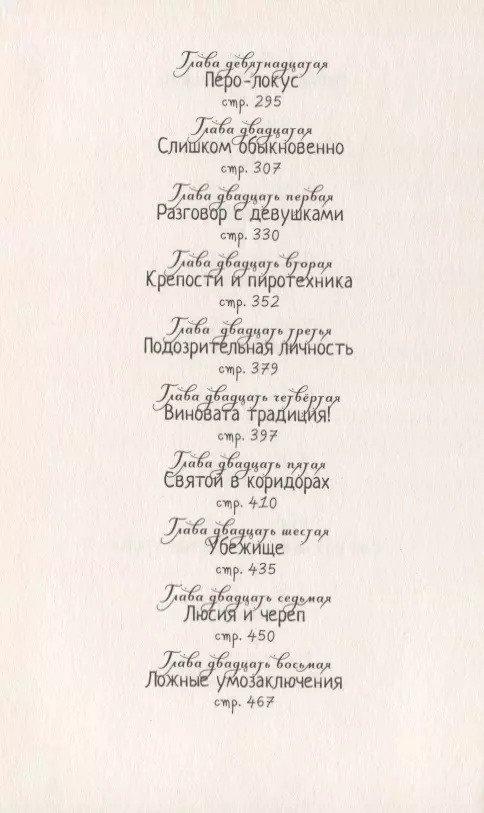 Глава девятнадцатая
Перо-локус
стр. 295
Глава двадцатая
Слишком обыкновенно
стр. 307
Глава двадцать первая
Разговор с девушками
стр. 330
Глава двадцать вторая
Крепости и пиротехника
стр. 352
Глава двадцать третья
Подозрительная личность
стр. 379
Глава двадцать четвёртая
Виновата традиция!
стр. 397
Глава двадцать пятая
Святой в коридорах
стр. 410
Глава двадцать шестая
Убежище
стр. 435
Глава двадцать седьмая
Люсия и череп
стр. 450
Глава двадцать восьмая
Ложные умозаключения
стр. 467